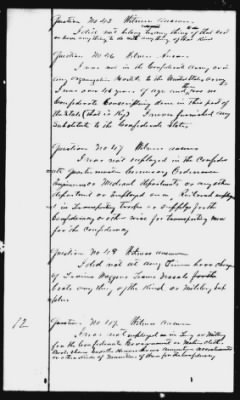 Question No 45 Witness answers
I did not belong to any thing of that kind
or have anything to do with anything of that kind
Question No 46 Witness answers
I was not in the Confederate Army nor in
any organization hostile to the United States Army
I was over 45 years of age and there was no
Confederate Conscripting done in this part of
the State (that is Ky) I never furnished any
substitute to the Confederate States
Question No 47 Witness answers
I was not employed in the Confederate
Quartermaster Commissary Ordinance
Engineers or Medical Departments or any other
department or employed on a Rail road employed
in transporting troops or supplies for the
Confederacy or otherwise for transporting men
for the confederacy
Question No 48 Witness answers
I did not at any time have charge
of trains Waggons teams Vessels
boats any thing of the kind or Military
supplies
12
Question No 49 Witness answers
I was not employed as in any
for the Confederate Government
for the Confederacy